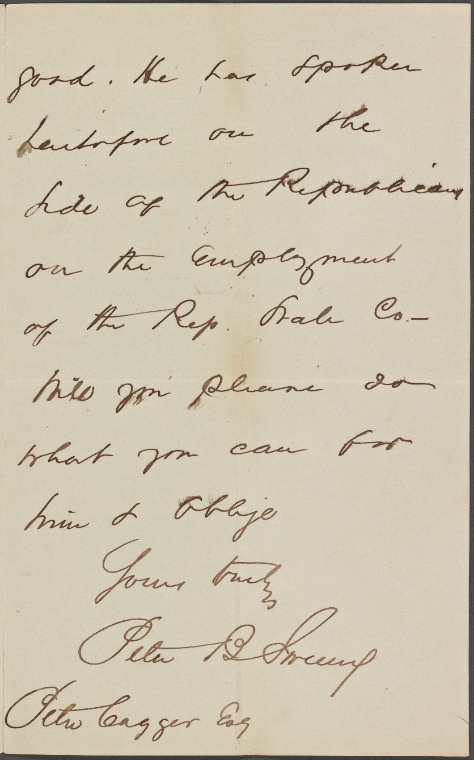 good. He has spoken
heretofore on the
side of the Republicans
on the Employment
of the Rep. State Co—
Will you please do
what you can for
him & oblige
Yours truly
Peter B Sweeny
Peter Cagger Esq